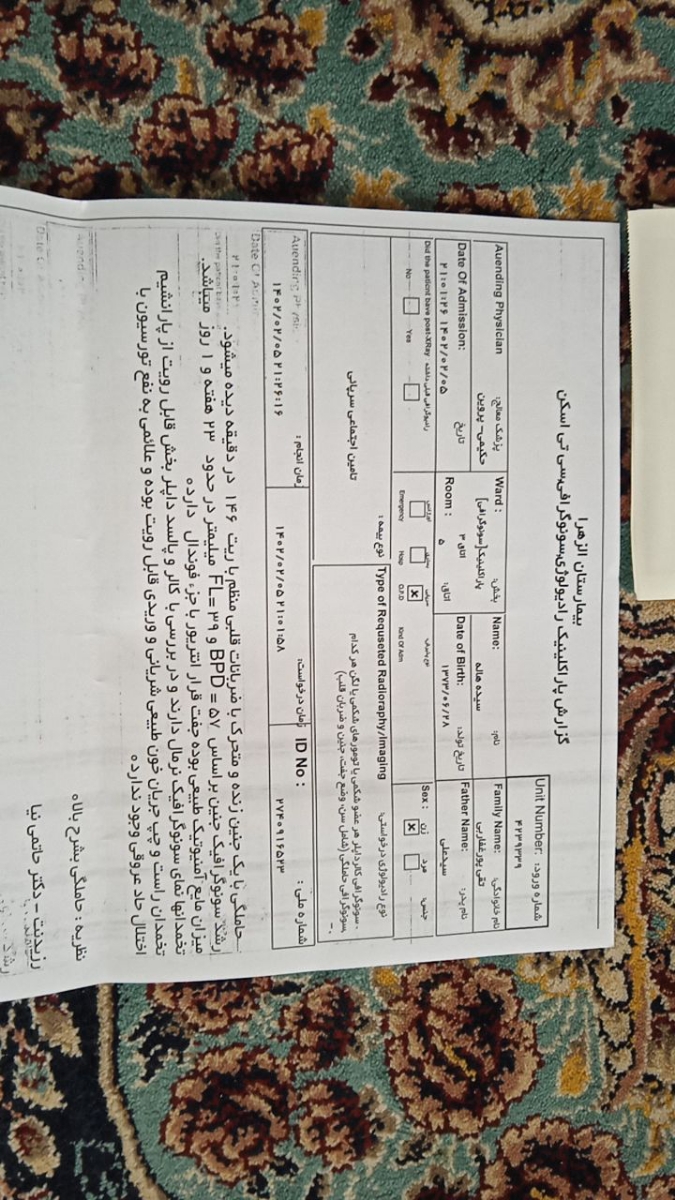 بیمارستان الزهرا
گزارش پاراکلینیک رادیولوژی،سونوگرافی،سی تی اسکن
Unit Number: شماره ورود:
۴۲۳۹۳۳۹
Auending Physician پزشک معالج: Ward : بخش: Name: نام: Family Name: نام خانوادگی:
حکیمی- پروین پاراکلینیک[سونوگرافی] سیده هاله تقی پورغفاربی
Date Of Admission: تاریخ Room : اتاق: Date of Birth: تاریخ تولد: Father Name: نام پدر:
۲۱:۰۱:۲۶ ۱۴۰۲/۰۲/۰۵ اتاق ۳ ۵ ۱۳۷۳/۰۶/۲۸ سیدعلی
Did the patient have post-XRay
No Yes Emergency Hosp O.P.D Kind Of Adm Sex : زن مرد جنس:
نوع بیمه : Type of Requseted Radioraphy/Imaging نوع رادیولوژی درخواستی:
تامین اجتماعی سرپائی
- سونوگرافی کالر داپلر هر عضو شکمی یا تومورهای شکمی یا لگن هر کدام
سونوگرافی حاملگی (شامل سن، وضع جفت، جنین و ضربان قلب)
زمان انجام : زمان درخواست: ID No : شماره ملی :
۱۴۰۲/۰۲/۰۵ ۲۱:۲۶:۱۶ ۱۴۰۲/۰۲/۰۵ ۲۱:۰۱:۵۸ ۲۷۴۰۹۱۶۵۲۳
حاملگی با یک جنین زنده و متحرک با ضربانات قلبی منظم با ریت ۱۴۶ در دقیقه دیده میشود.
رشد سونوگرافیک جنین براساس BPD = ۵۷ و FL= ۳۹ میلیمتر در حدود ۲۳ هفته و ۱ روز میباشد.
میزان مایع آمنیوتیک طبیعی بوده جفت قرار انتریور با جزء فوندال دارده
تخمدانها نمای سونوگرافیک نرمال دارند و در بررسی با کالر و پالسد داپلر بخش قابل رویت از پارانشیم
تخمدان راست و چپ جریان خون طبیعی شریانی و وریدی قابل رویت بوده و علائمی به نفع تورسیون با
اختلال حاد عروقی وجود ندارده
نظریه : حاملگی بشرح بالاه
رزیدنت - دکتر حاتمی نیا